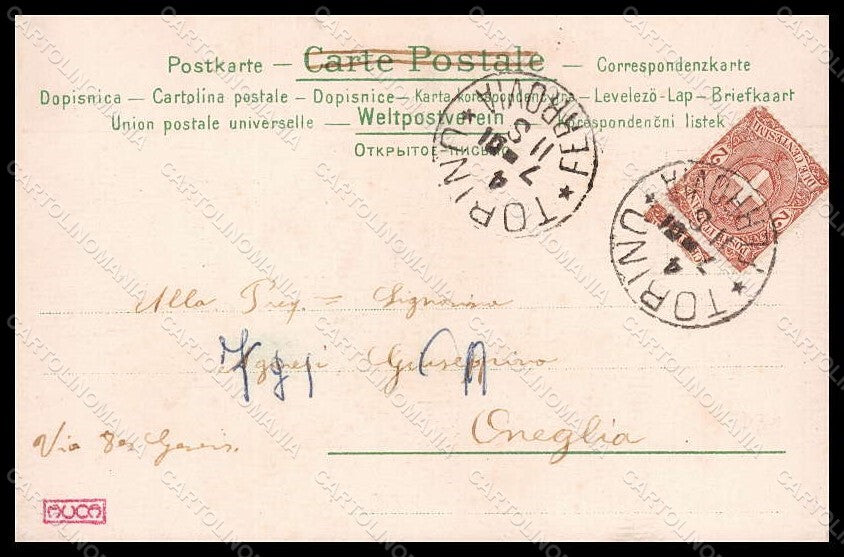 Postkarte — Carte Postale — Correspondenzkarte
Dopisnica — Cartolina postale — Dopisnice — Karta korespondencyjna — Levelező-Lap — Briefkaart
Union postale universelle — Weltpostverein — Korespondenční listek
Открытое письмо
TORINO FERROVIA
7
11 S
4 01
DUE CENTESIMI
2
POSTE ITALIANE
TORINO FERROVIA
7
11 S
4 01
Alla Preg = Signorina
Giuseppina
Oneglia
Via
AUCA
CARTOLINOMANIA